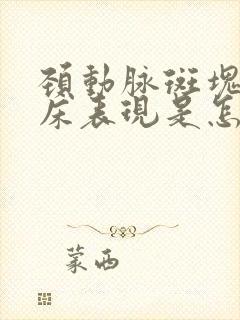 頚動脉斑塊
床表現是怎
蒙西